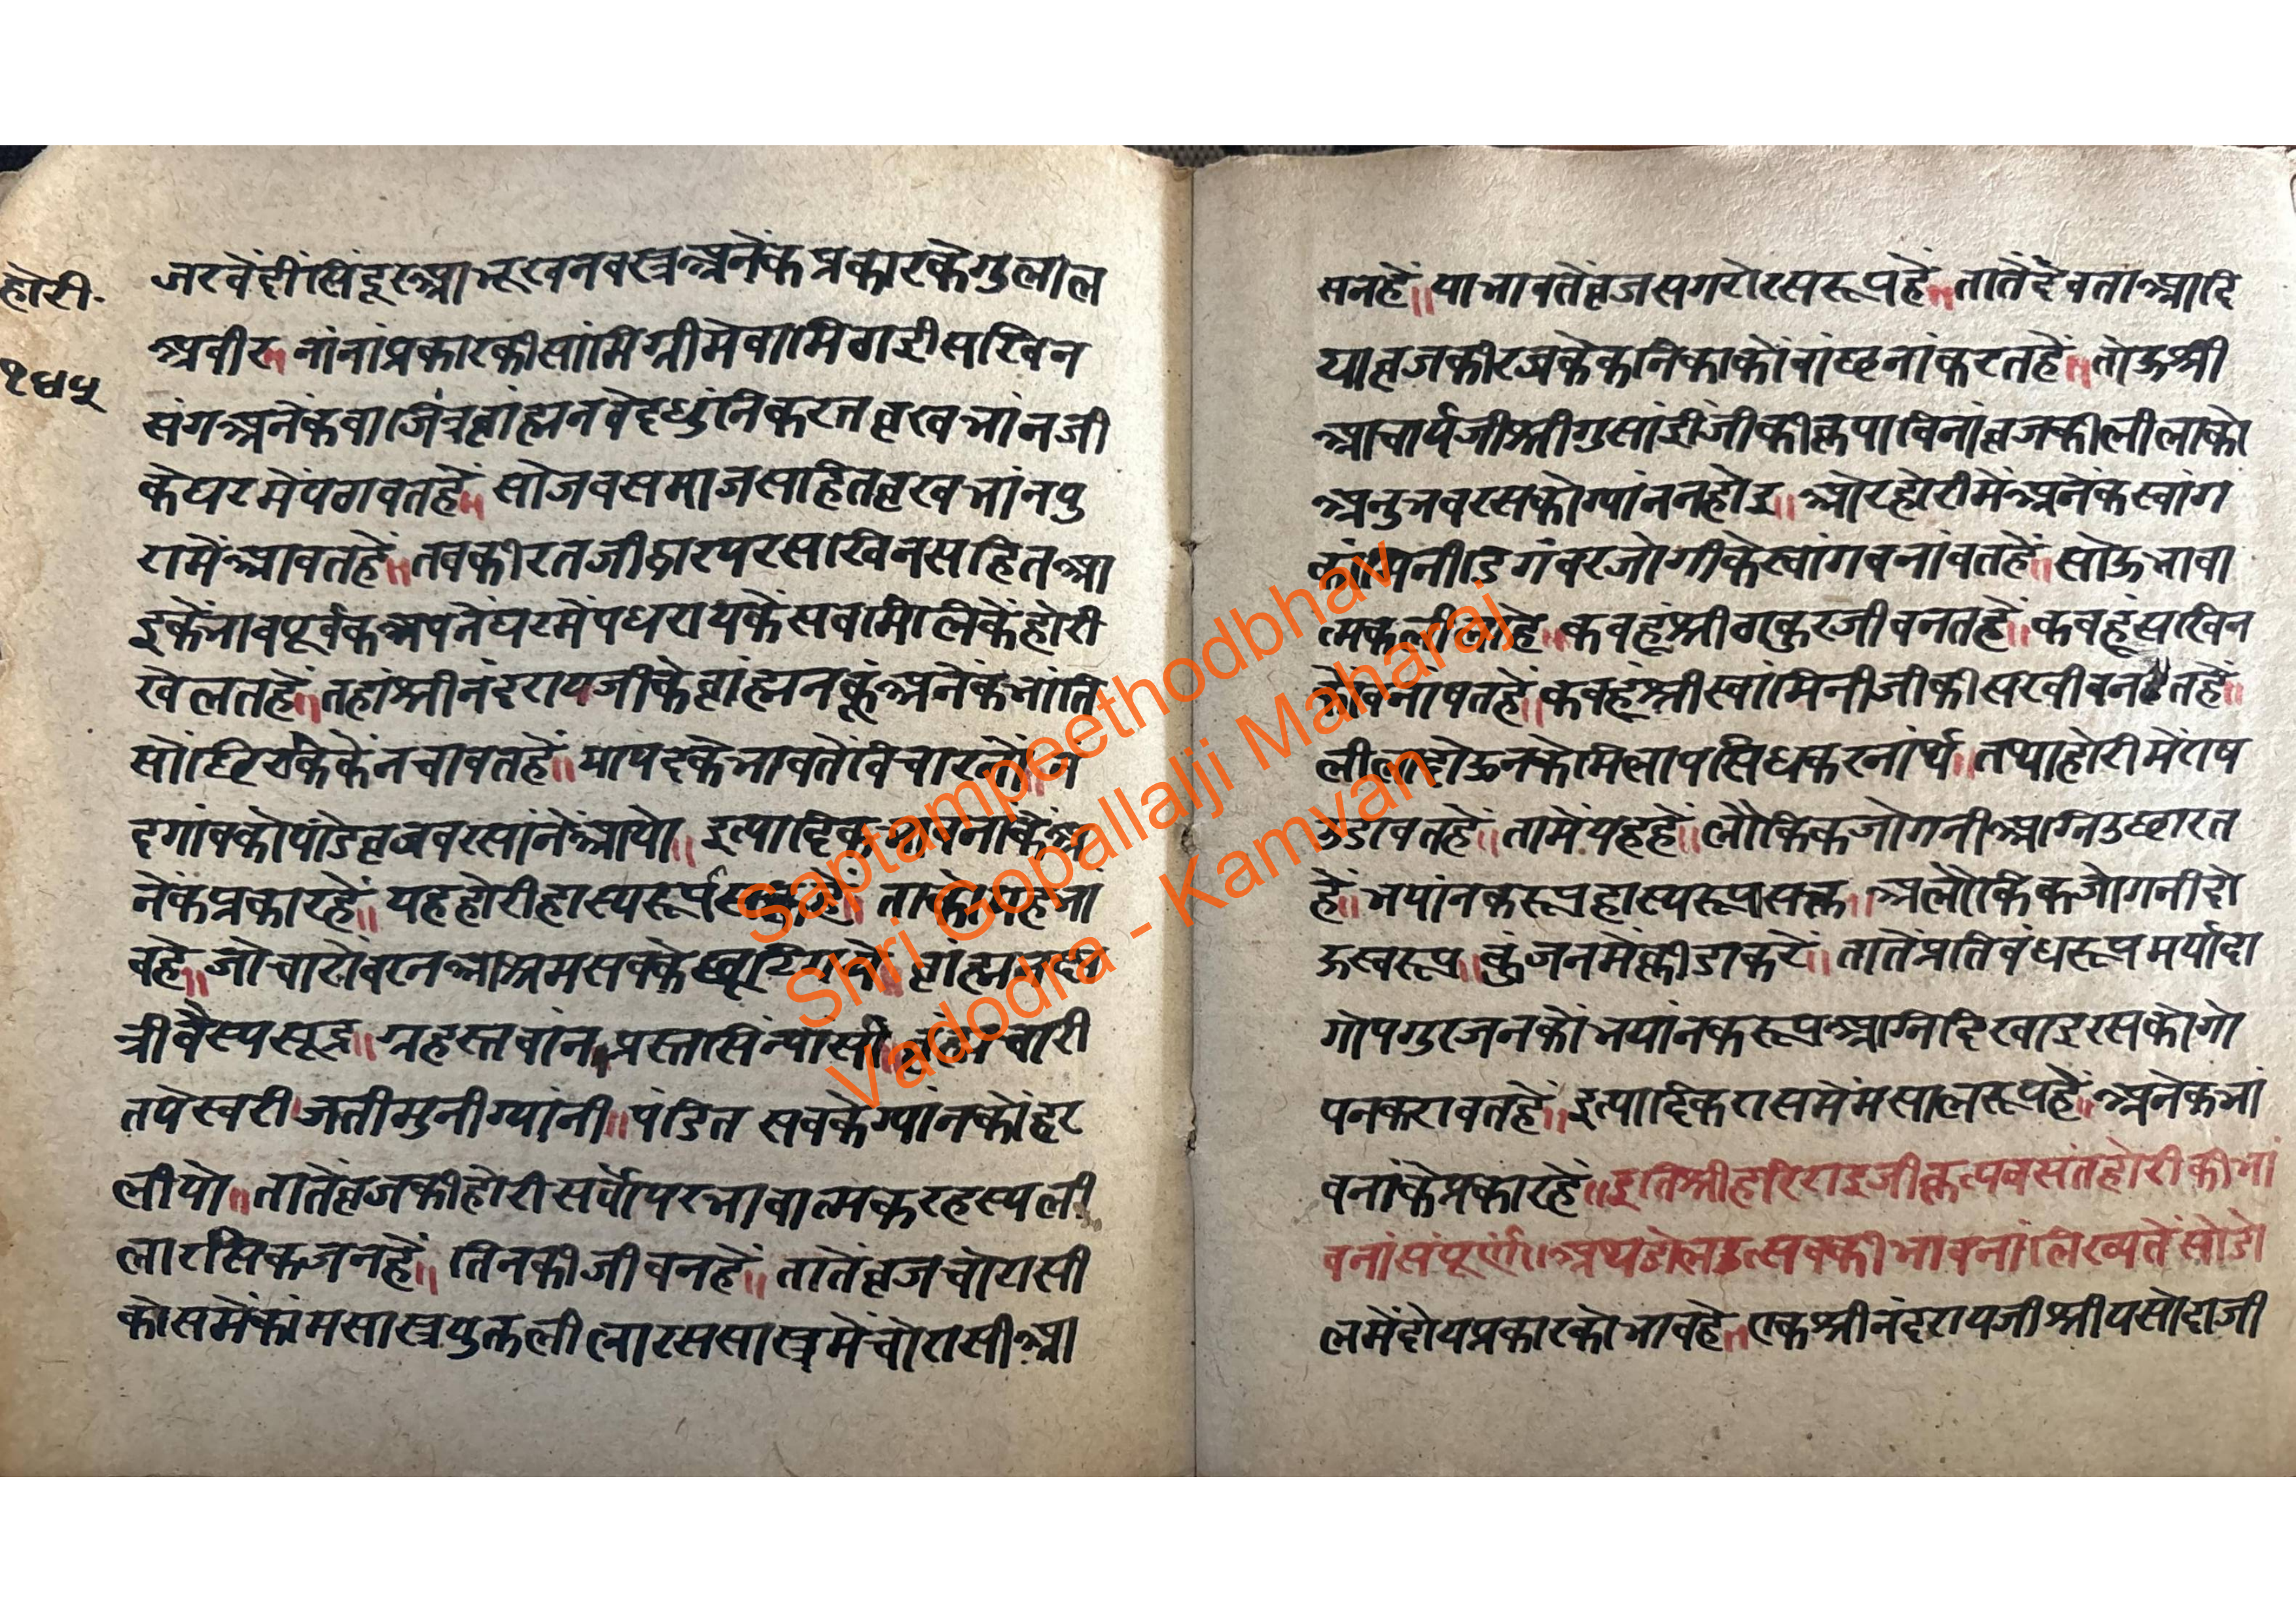 होरी·
१६५
जरवेंदींसिंदूरुआभूखनवस्त्रअनेंकप्रकारकेगुलाल
अवीर॥नांनांप्रकारकीसांमिग्रीमेवामिठाईसखिन
संगअनेंकवाजिंत्रव्रांह्मनवेदधुंनिकरतव्रखभांनजी
केघरमेंपठावतहें॥सोजवसमाजसहितव्रखभांनपु
रामेंआवतहें॥तवकीरतजीद्वारपरसखिनसहितआ
इकेंभावपूर्वकअपनेंघरमेंपधरायकेंसवमिलिकेंहोरी
खेलतहें॥तहांश्रीनंदरायजीकेव्रांह्मनकूंअनेंकभांति
सों
दगांवकोपांडेव्रजवरसांनेंआयो॥इत्यादिक
नेंकप्रकारहें॥यहहोरीहास्यरूप
वहे॥जोचारोंवरनआश्रमसवके व्रांह्मन
त्रीवैस्यसूद्र॥ग्रहस्तवांनप्रस्तसिंन्यासी॥व्रंह्मचारी
तपेस्वरी।जतीमुनीग्यांनी॥पंडित सवकेग्यांनकोंहर
लीयो॥तातेंव्रजकीहोरीसर्वोपरभावात्मकरहस्यली
लारसिकजनहें॥तिनकीजीवनहें॥तातेंव्रजचोरासी
कोसमेंकांमसास्त्रयुक्तलीलारससास्त्रमेंचोरासीआ
सनहें॥याभावतेंव्रजसगरोरसरूपहें॥तातेंदेवताआदि
याव्रजकीरजकेकनिकाकोंवांछनांकरतहें॥तोऊश्री
आचार्यजीश्रीगुसांईजीकीकृपाविनांव्रजकीलीलाको
अनुभवरसकोग्यांननहोइ॥ओरहोरीमेंअनेंकस्वांग
दिगंवरजोगीकेस्वांगवनांवतहें॥सोऊभावा
त्मकलीलाहे॥कवहूंश्रीठाकुरजीवनतहें॥कवहूंसखिन
कोंवनाषतहें॥कवहूंश्रीस्वांमिनीजीकीसखीवनतहें॥
लीलादोऊनकोमिलापसिधकरनांर्थ॥तथाहोरीमेंराष
उडावतहें॥तामेंयहहें॥लौकिकजोगनीअग्निउछारत
हें॥भयांनकरूपहास्यरूपसक्त॥अलौकिकजोगनीदो
ऊस्वरूप॥कुंजनमेंक्रीडाकरें॥तातेंप्रतिवंधरूपमर्यादा
गोपगुरजनकोंभयांनकरूपअग्निदिखाइरसकोगो
पनकरावतहें॥इत्यादिकरासमेंमसालरूपहें॥अनेकभां
वनांकेप्रकारहें॥इतिश्रीहरिराइजीकृत्यवसंतहोरीकीभां
वनांसंपूर्ण॥अथडोलउत्सवकीभावनांलिख्यतेंसोडो
लमेंदोयप्रकारकोभावहे॥एकश्रीनंदरायजीश्रीयसोदाजी